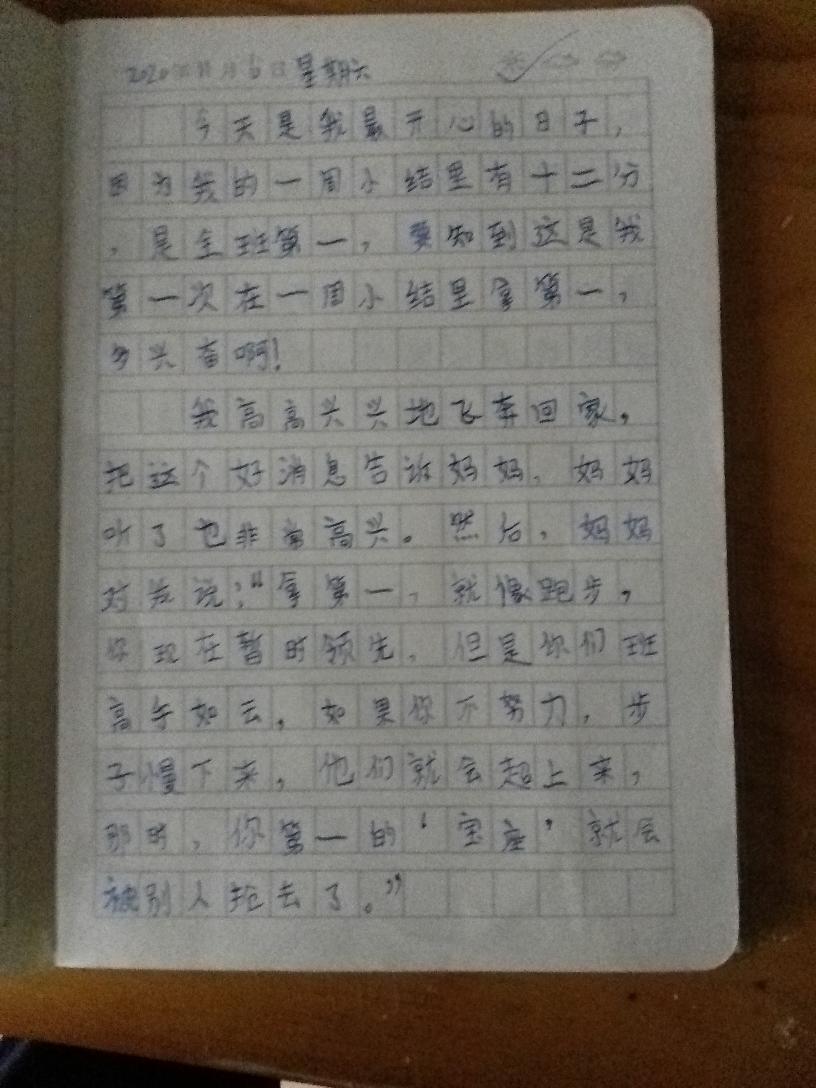 2020年11月 日 星期六
今天是我最开心的日子，
因为我的一周小结里有十二分
，是全班第一，要知到这是我
第一次在一周小结里拿第一，
多兴奋啊！
我高高兴兴地飞奔回家，
把这个好消息告诉妈妈，妈妈
听了也非常高兴。然后，妈妈
对我说：“拿第一，就像跑步，
你现在暂时领先，但是你们班
高手如云，如果你不努力，步
子慢下来，他们就会超上来，
那时，你第一的‘宝座’就会
被别人抢去了。”